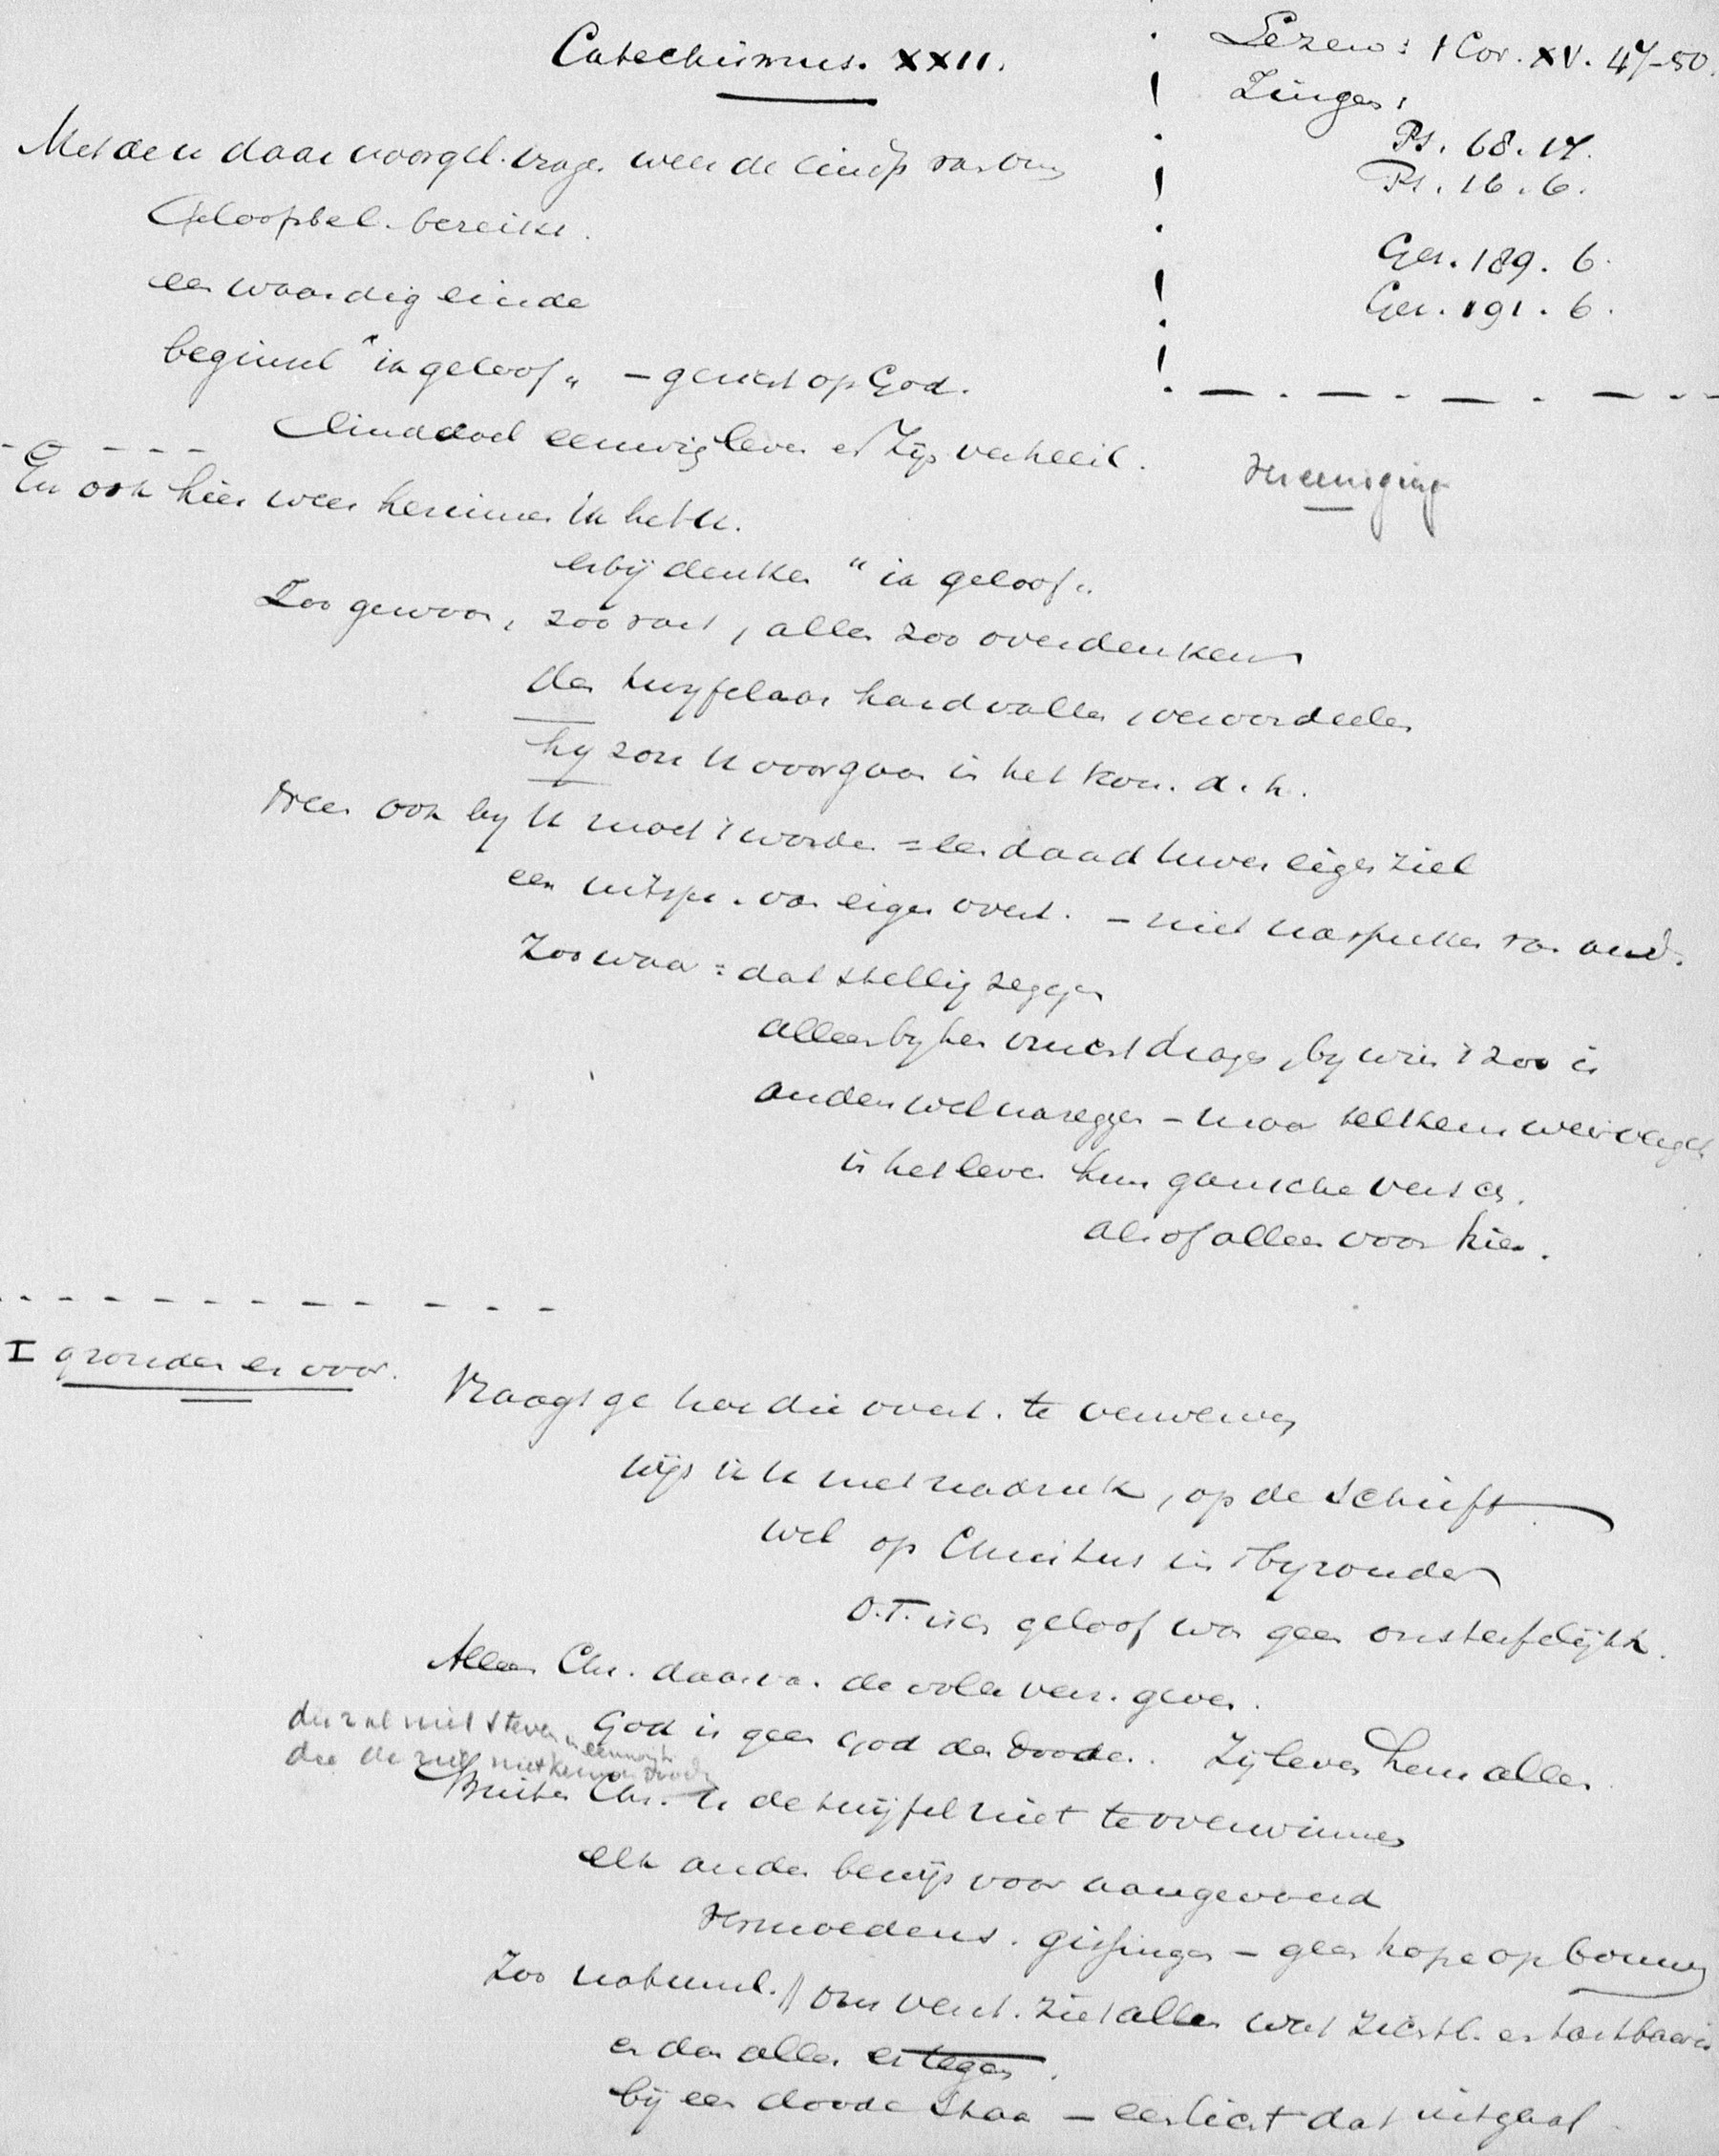 Catechismus. XXII.
Lezen: 1 Cor. XV. 47-50.
Zingen:
Ps. 68. 17.
Ps. 16. 6.
Gez. 189. 6.
Gez. 191. 6.
Met deze daar voorgel. vrage. wier de eindp van ons
Geloofsbel. bereikt.
een waardig einde
beginsel "ik geloof" - gericht op God.
Einddoel eeuwig leven Zijn verheerl.
Vereeniging
En ook hier weer herinner ik het u.
erbij denken "ik geloof"
Zoo gewoon, zoo vast, allen zoo overdenken
den twijfelaar hard vallen, veroordeelen
hij zou u voorgaan in het kon. d. h.
Neen ook bij u moet 't worden = een daad uwer eigen ziel
een uitspr. van eigen overt. - niet naspreken van and.
Zoo waar = dat stellig zeggen
alleen bij hen vrucht dragen, bij wien 't zoo is
anderen wel nazeggen - maar telkens
in het leven hun gansche
alsof alleen voor hier.
I gronden er voor.
Vraagt ge hoe die overt. te verwerven
wijs ik u met nadruk, op de Schrift
wel op Christus in 't bijzonder
O.T. isr. geloof was geen onsterfelijkh.
Alleen Chr. daarvan de volle verz. geven.
God is geen God der dooden. Zij leven hem allen.
die zal niet sterven in eeuwigh.
die de ziel niet kunnen dooden
Buiten Chr. is de twijfel niet te overwinnen
elk ander bewijs voor aangevoerd
Vermoedens. gissingen - geen hope op bouwen
Zoo natuurl. // ons verst. ziet alleen wat zichtb. en tastbaar is
en dan alles er tegen.
bij een doode staan - een licht dat uitgaat